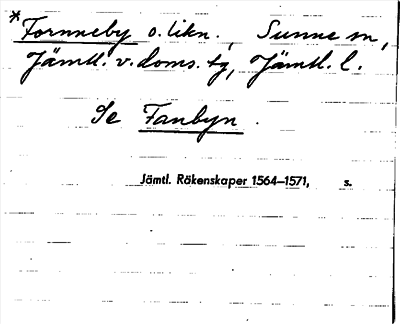 *Fornneby o. likn., Sunne sn,
Jämtl. v. doms. tg, Jämtl. l.
Se Fanbyn.
Jämtl. Räkenskaper 1564–1571, s.